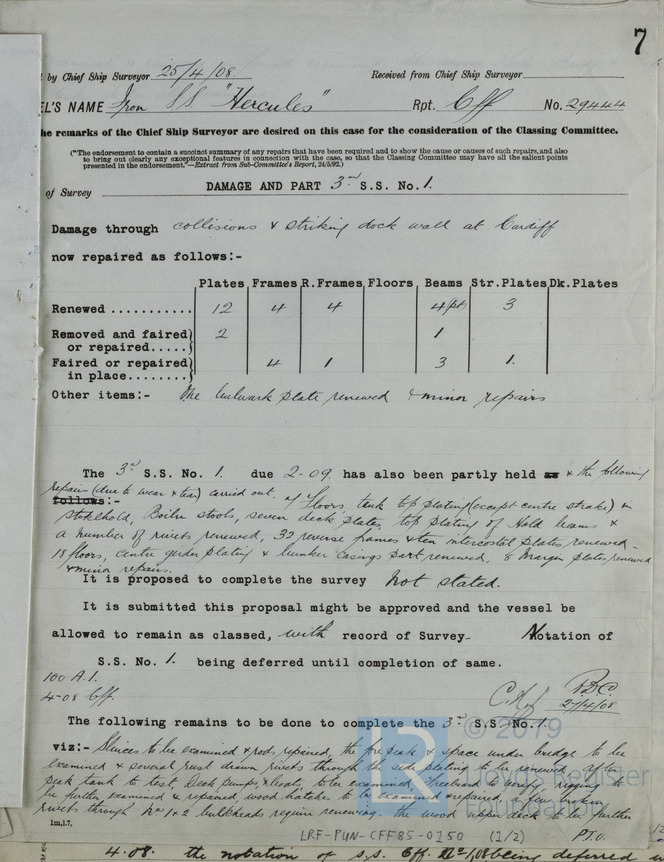 7
by Chief Ship Surveyor 25/4/08 Received from Chief Ship Surveyor
EL'S NAME Iron SS "Hercules" Rpt. Cff No. 29444
he remarks of the Chief Ship Surveyor are desired on this case for the consideration of the Classing Committee.
("The endorsement to contain a succinct summary of any repairs that have been required and to show the cause or causes of such repairs, and also
to bring out clearly any exceptional features in connection with the case, so that the Classing Committee may have all the salient points
presented in the endorsement."—Extract from Sub-Committee's Report, 24/5/92.)
of Survey DAMAGE AND PART 3rd S.S. No. 1.
Damage through collisions & striking dock wall at Cardiff
now repaired as follows:-
Plates Frames R.Frames Floors Beams Str.Plates Dk.Plates
Renewed ........... 12 4 4 4(pt) 3
Removed and faired) 2 1
or repaired.....)
Faired or repaired) 4 1 3 1.
in place........)
Other items:- One bulwark plate renewed & minor repairs
The 3rd S.S. No. 1. due 2-09 has also been partly held as & the following
repairs (due to wear & tear) carried out.
follows:- floors, tank top plating (except centre strake) in
stokehold, Boiler stools, seven deck plates, top plating of hold beams &
a number of rivets renewed, 32 reverse frames & ten intercostal plates renewed -
18 floors, centre girder plating & bunker casings part renewed, 8 Margin plates renewed
& minor repairs.
It is proposed to complete the survey Not stated.
It is submitted this proposal might be approved and the vessel be
allowed to remain as classed, with record of Survey- Notation of
S.S. No. 1. being deferred until completion of same.
100 A.1.
4-08 Cff.
27/4/08
The following remains to be done to complete the 3rd S.S. No. 1.
viz:- Sluices to be examined & rods repaired, the fore peak & space under bridge to be
examined & several rust drawn rivets through the side plating to be renewed, after
peak tank to test, Deck pumps, & boats, to be examined, freeboard to verify, rigging to
be further examined & repaired, wood hatches to be examined & repaired, a few
rivets through Nos 1 & 2 bulkheads require renewing. The wood upper deck to be further
1m,1.7.
LRF-PUN-CFF85-0150 (1/2) P.T.O.
4.08. the notation of S.S. Cff. No 1,08 being deferred
© 2019
LR
Lloyd's Register
Foundation